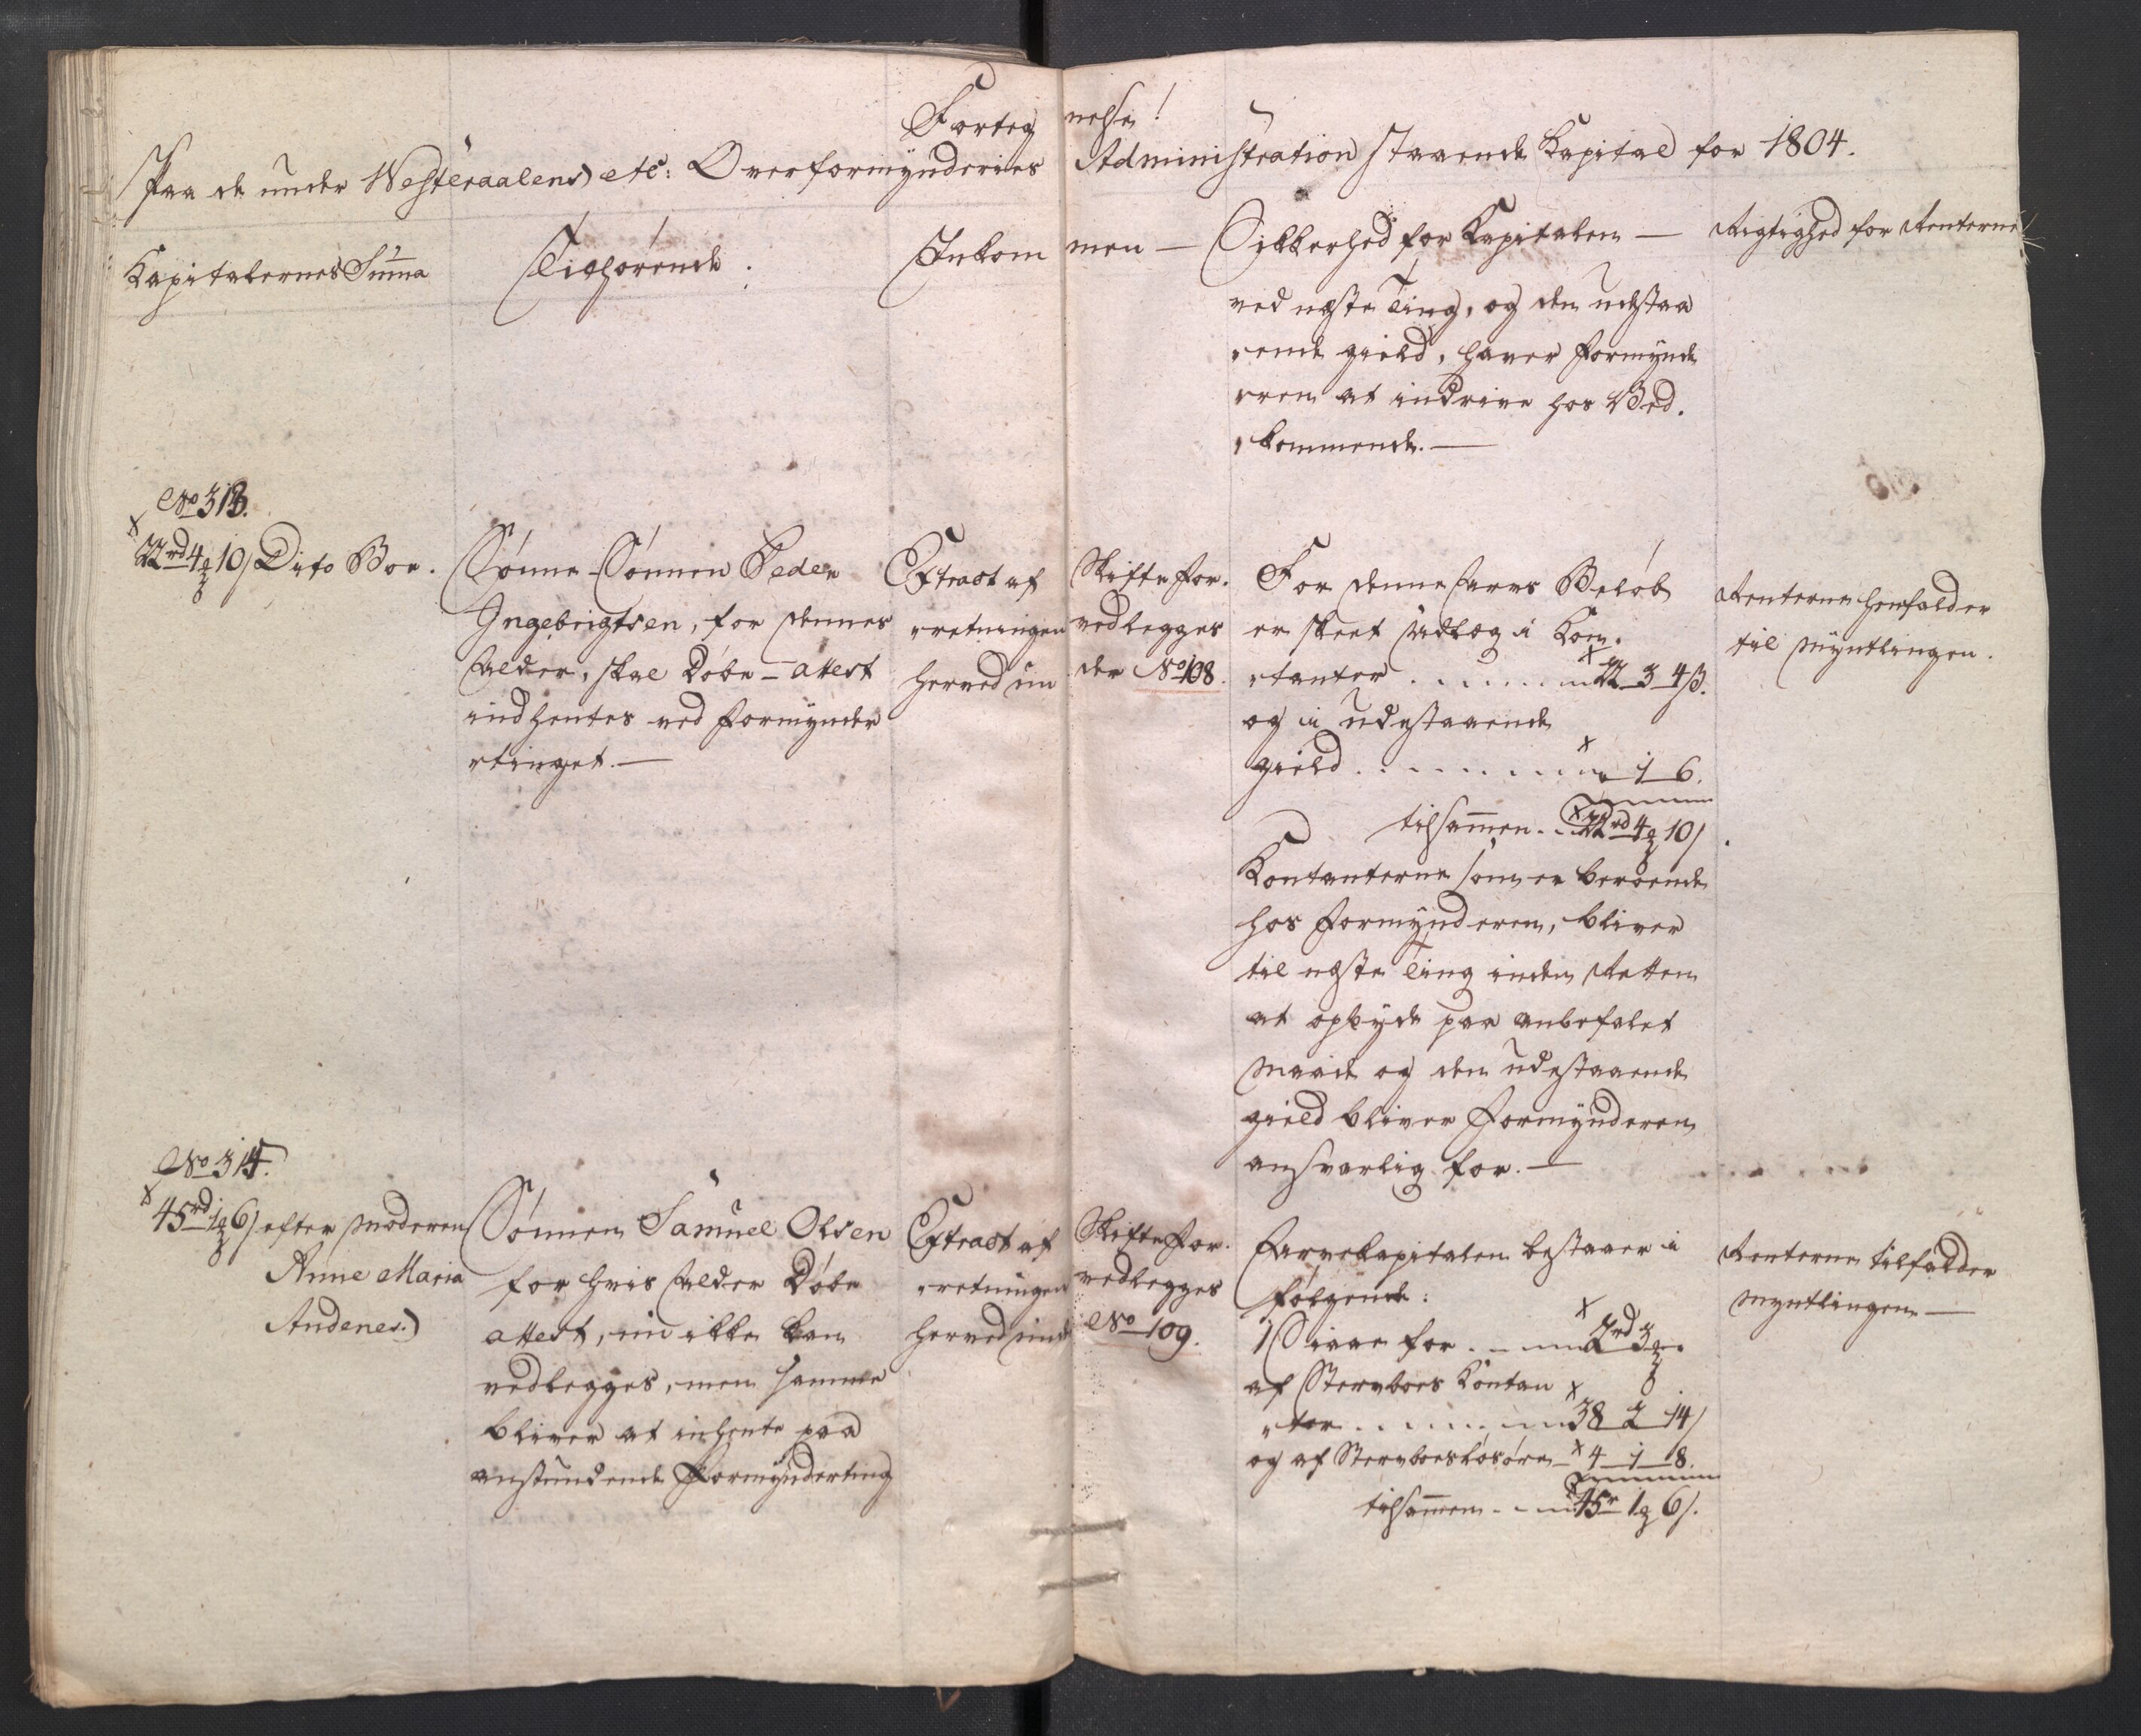 Forteg nelse!
Paa de under Westeraalens etc: Overformynderies Administration staaende Kapital for 1804.
Kapitalernes Suma
Tilhørende.
Inkom men —
Sikkerhed for Kapitalen —
Rigtighed for Renterne
ved næste Ting, og den udestaa
rende gield, haver Formynde
rren at indrive hos Ved.
kommende. —
No 313.
22rd 4 10 s Dito Boe.
Sønne-Sønnen Peder
Ingebrigtsen, for dennes
Alder, skal Døbe-attest
indhentes ved Formynder
tinget. —
Extract af
retningen
herved un
Skiftefor.
vedlegges
der No 108.
For denne Arvs Beløb
er skeet Udlæg i Kon.
tanter . . . . . . 22 3 4 s.
og i udestaaende
gield . . . . . . . 1 6.
tilsammen . . 22rd 4 10 s.
Kontanterne som er beroende
hos Formynderen, bliver
til næste Ting inden Retten
at opbyde paa anbefalet
Maade og den udestaaende
gield bliver Formynderen
ansvarlig for. —
Renterne henfalder
til Myntlingen.
No 314.
45rd 1 6 s efter Moderen
Anne Maria
Andenes.
Sønnen Samuel Olsen
for hvis Alder Døbe
attest, nu ikke kan
vedlegges, men samme
bliver at inhente paa
anstundende Formynderting
Extract af
retningen
herved und
Skiftefor.
vedlegges
No 109.
Arvekapitalen bestaaer i
følgende:
1 for . . . 2rd 3
af Stervboes Kontan
ter . . . . . . 38 2 14 s
og af Stervboesløsøre 4 1 8.
tilsammen . . 45r 1 6 s.
Renterne tilfalder
Myntlingen —